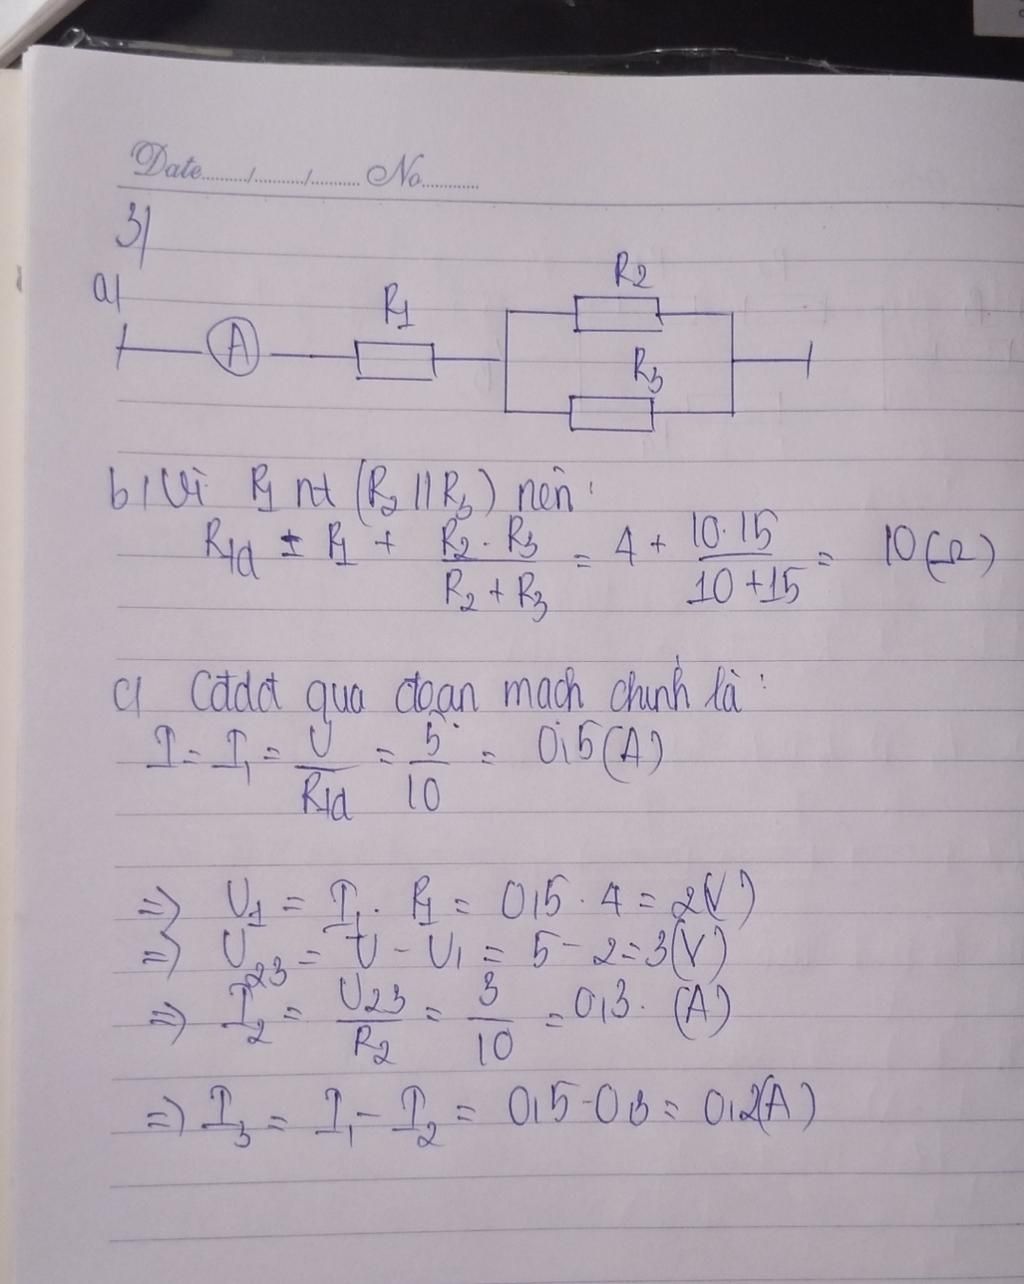 Date......../........../.......... No............
3/
a/
A R1 R2 R3
b/ Vì R1 nt (R2 // R3) nên:
Rtđ = R1 + R2 . R3 / R2 + R3 = 4 + 10.15 / 10+15 = 10(Ω)
c/ Cđdđ qua đoạn mạch chính là:
I = I1 = U / Rtđ = 5 / 10 = 0,5(A)
=> U1 = I1 . R1 = 0,5 . 4 = 2(V)
=> U23 = U - U1 = 5 - 2 = 3(V)
=> I2 = U23 / R2 = 3 / 10 = 0,3. (A)
=> I3 = I1 - I2 = 0,5 - 0,3 = 0,2(A)